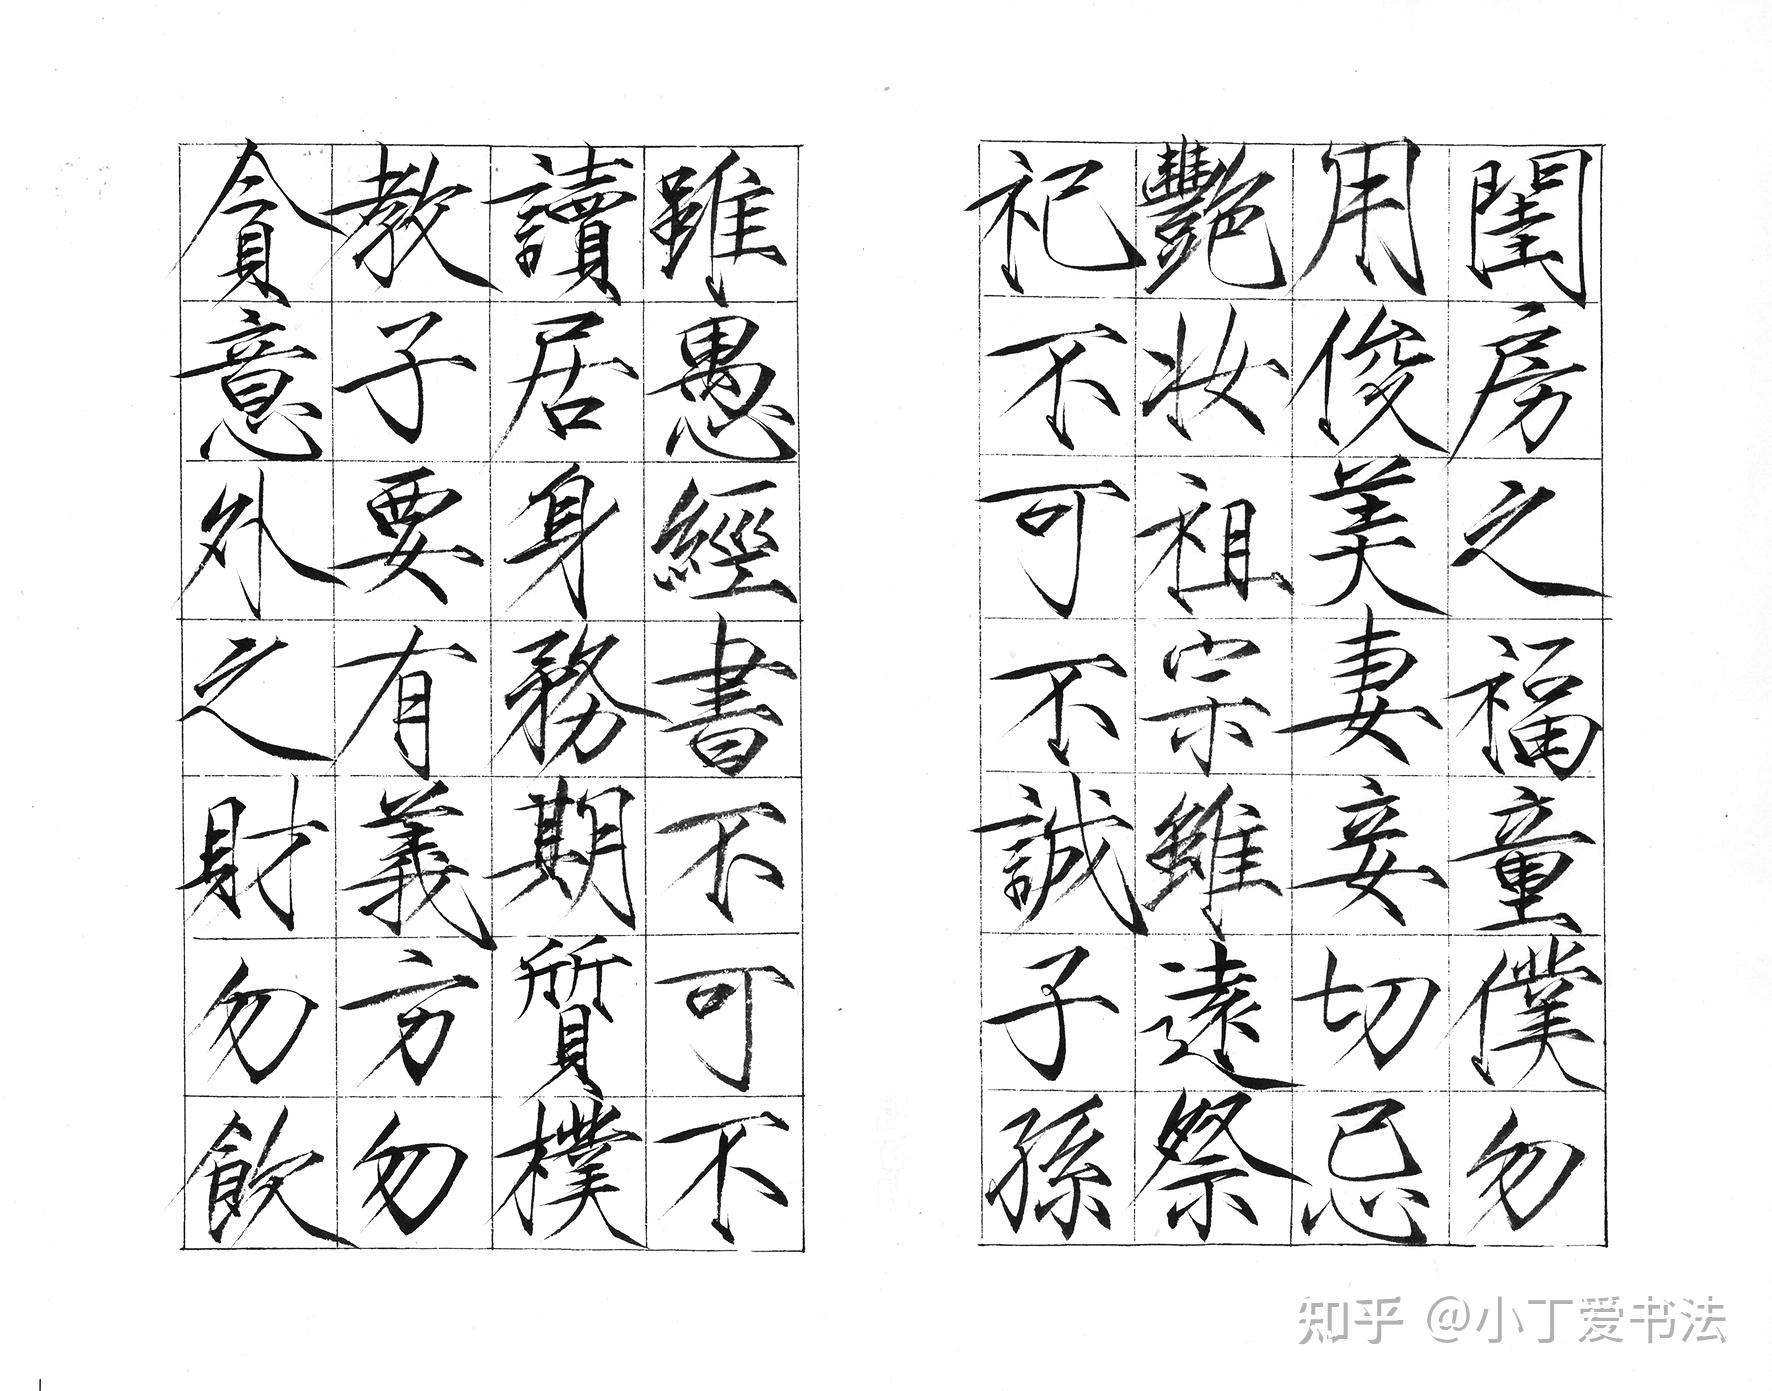 閨房之福童僕勿
用俊美妻妾切忌
艷妝祖宗雖遠祭
祀不可不誠子孫
雖愚經書不可不
讀居身務期質樸
教子要有義方勿
貪意外之財勿飲
知乎 @小丁爱书法